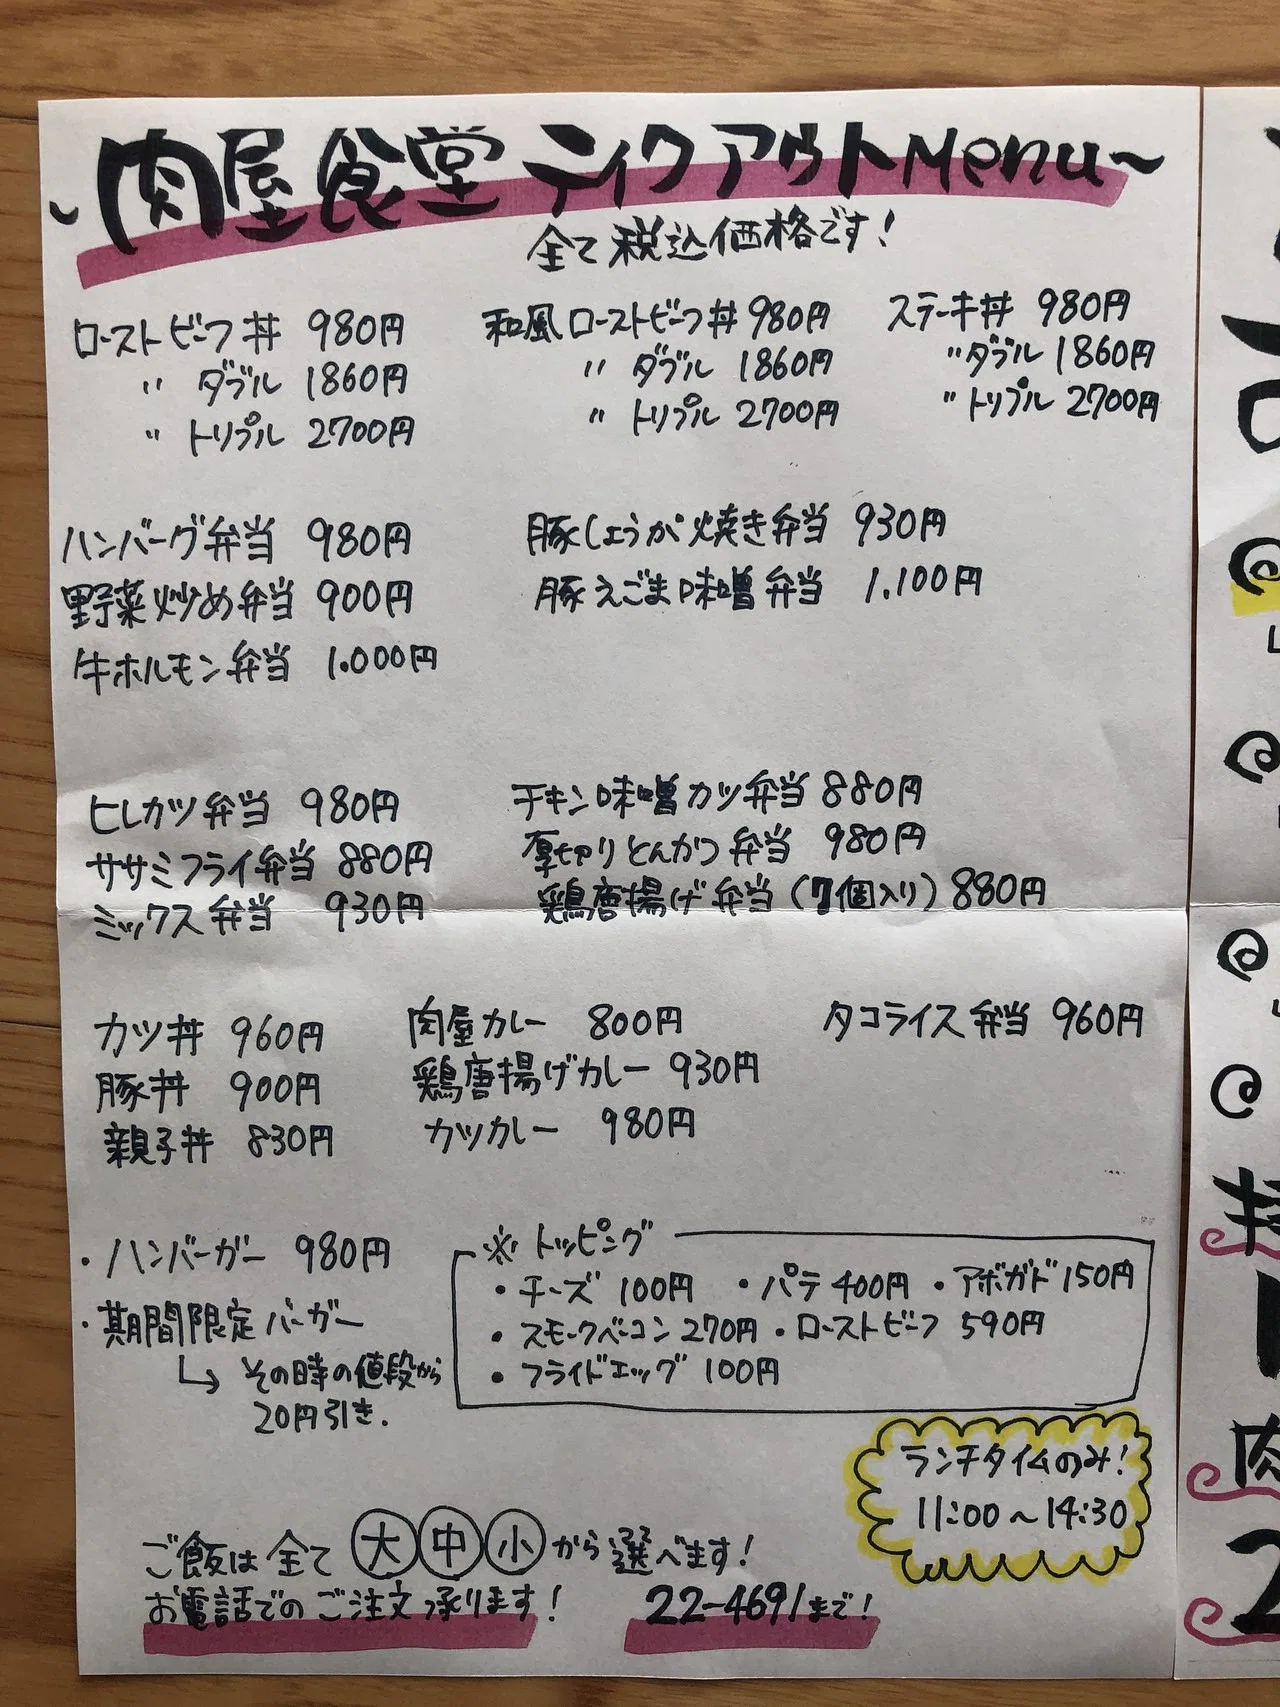 ~肉屋食堂 テイクアウトMenu~
全て税込価格です!
ローストビーフ丼 980円
〃 ダブル 1860円
〃 トリプル 2700円
和風ローストビーフ丼 980円
〃 ダブル 1860円
〃 トリプル 2700円
ステーキ丼 980円
〃ダブル 1860円
〃トリプル 2700円
ハンバーグ弁当 980円
野菜炒め弁当 900円
牛ホルモン弁当 1.000円
豚しょうが焼き弁当 930円
豚えごま味噌弁当 1.100円
ヒレカツ弁当 980円
ササミフライ弁当 880円
ミックス弁当 930円
チキン味噌カツ弁当 880円
厚切りとんかつ弁当 980円
鶏唐揚げ弁当(7個入り) 880円
カツ丼 960円
豚丼 900円
親子丼 830円
肉屋カレー 800円
鶏唐揚げカレー 930円
カツカレー 980円
タコライス弁当 960円
・ハンバーガー 980円
・期間限定バーガー
↳ その時の値段から
20円引き.
※トッピング
・チーズ 100円 ・パテ 400円 ・アボガド150円
・スモークベーコン 270円 ・ローストビーフ 590円
・フライドエッグ 100円
ランチタイムのみ!
11:00~14:30
ご飯は全て大中小から選べます!
お電話でのご注文承ります! 22-4691まで!
肉